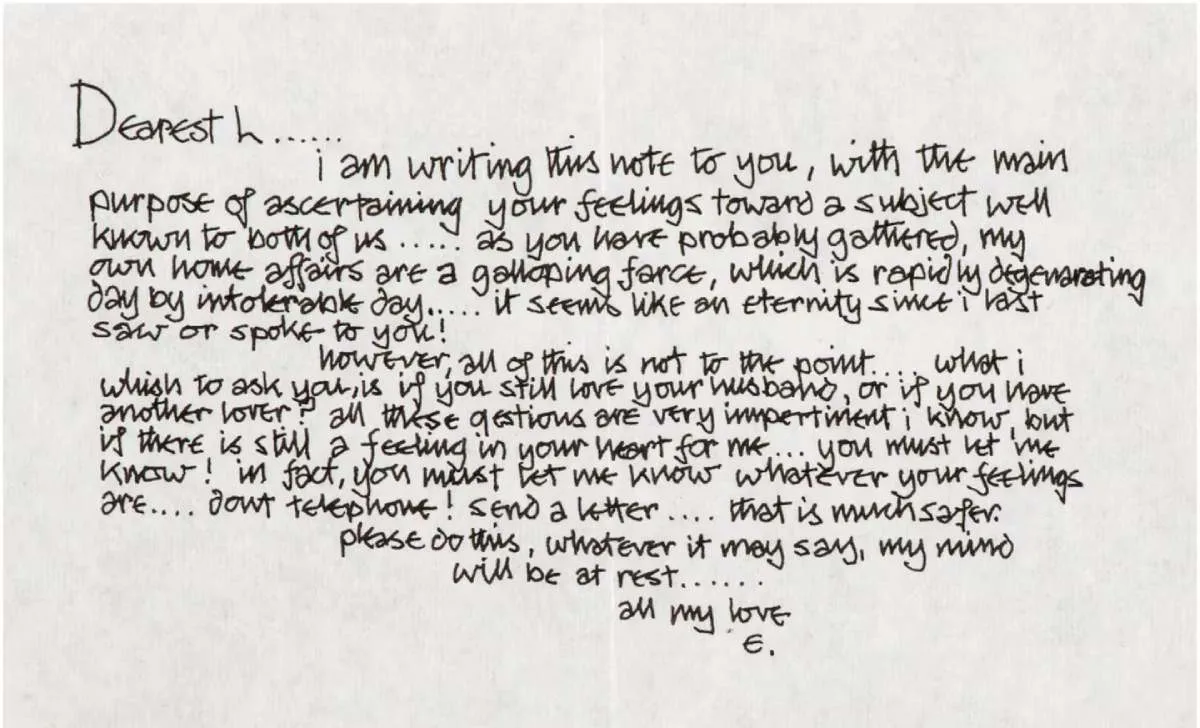 Dearest L......
i am writing this note to you, with the main
purpose of ascertaining your feelings toward a subject well
known to both of us ..... as you have probably gathered, my
own home affairs are a galloping farce, which is rapidly degenarating
day by intolerable day..... it seems like an eternity since i last
saw or spoke to you!
however, all of this is not to the point.... what i
whish to ask you, is if you still love your husband, or if you have
another lover? all these qestions are very impertinent i know, but
if there is still a feeling in your heart for me.... you must let me
know! in fact, you must let me know whatever your feelings
are.... dont telephone! send a letter .... that is much safer.
please do this, whatever it may say, my mind
will be at rest......
all my love
e.